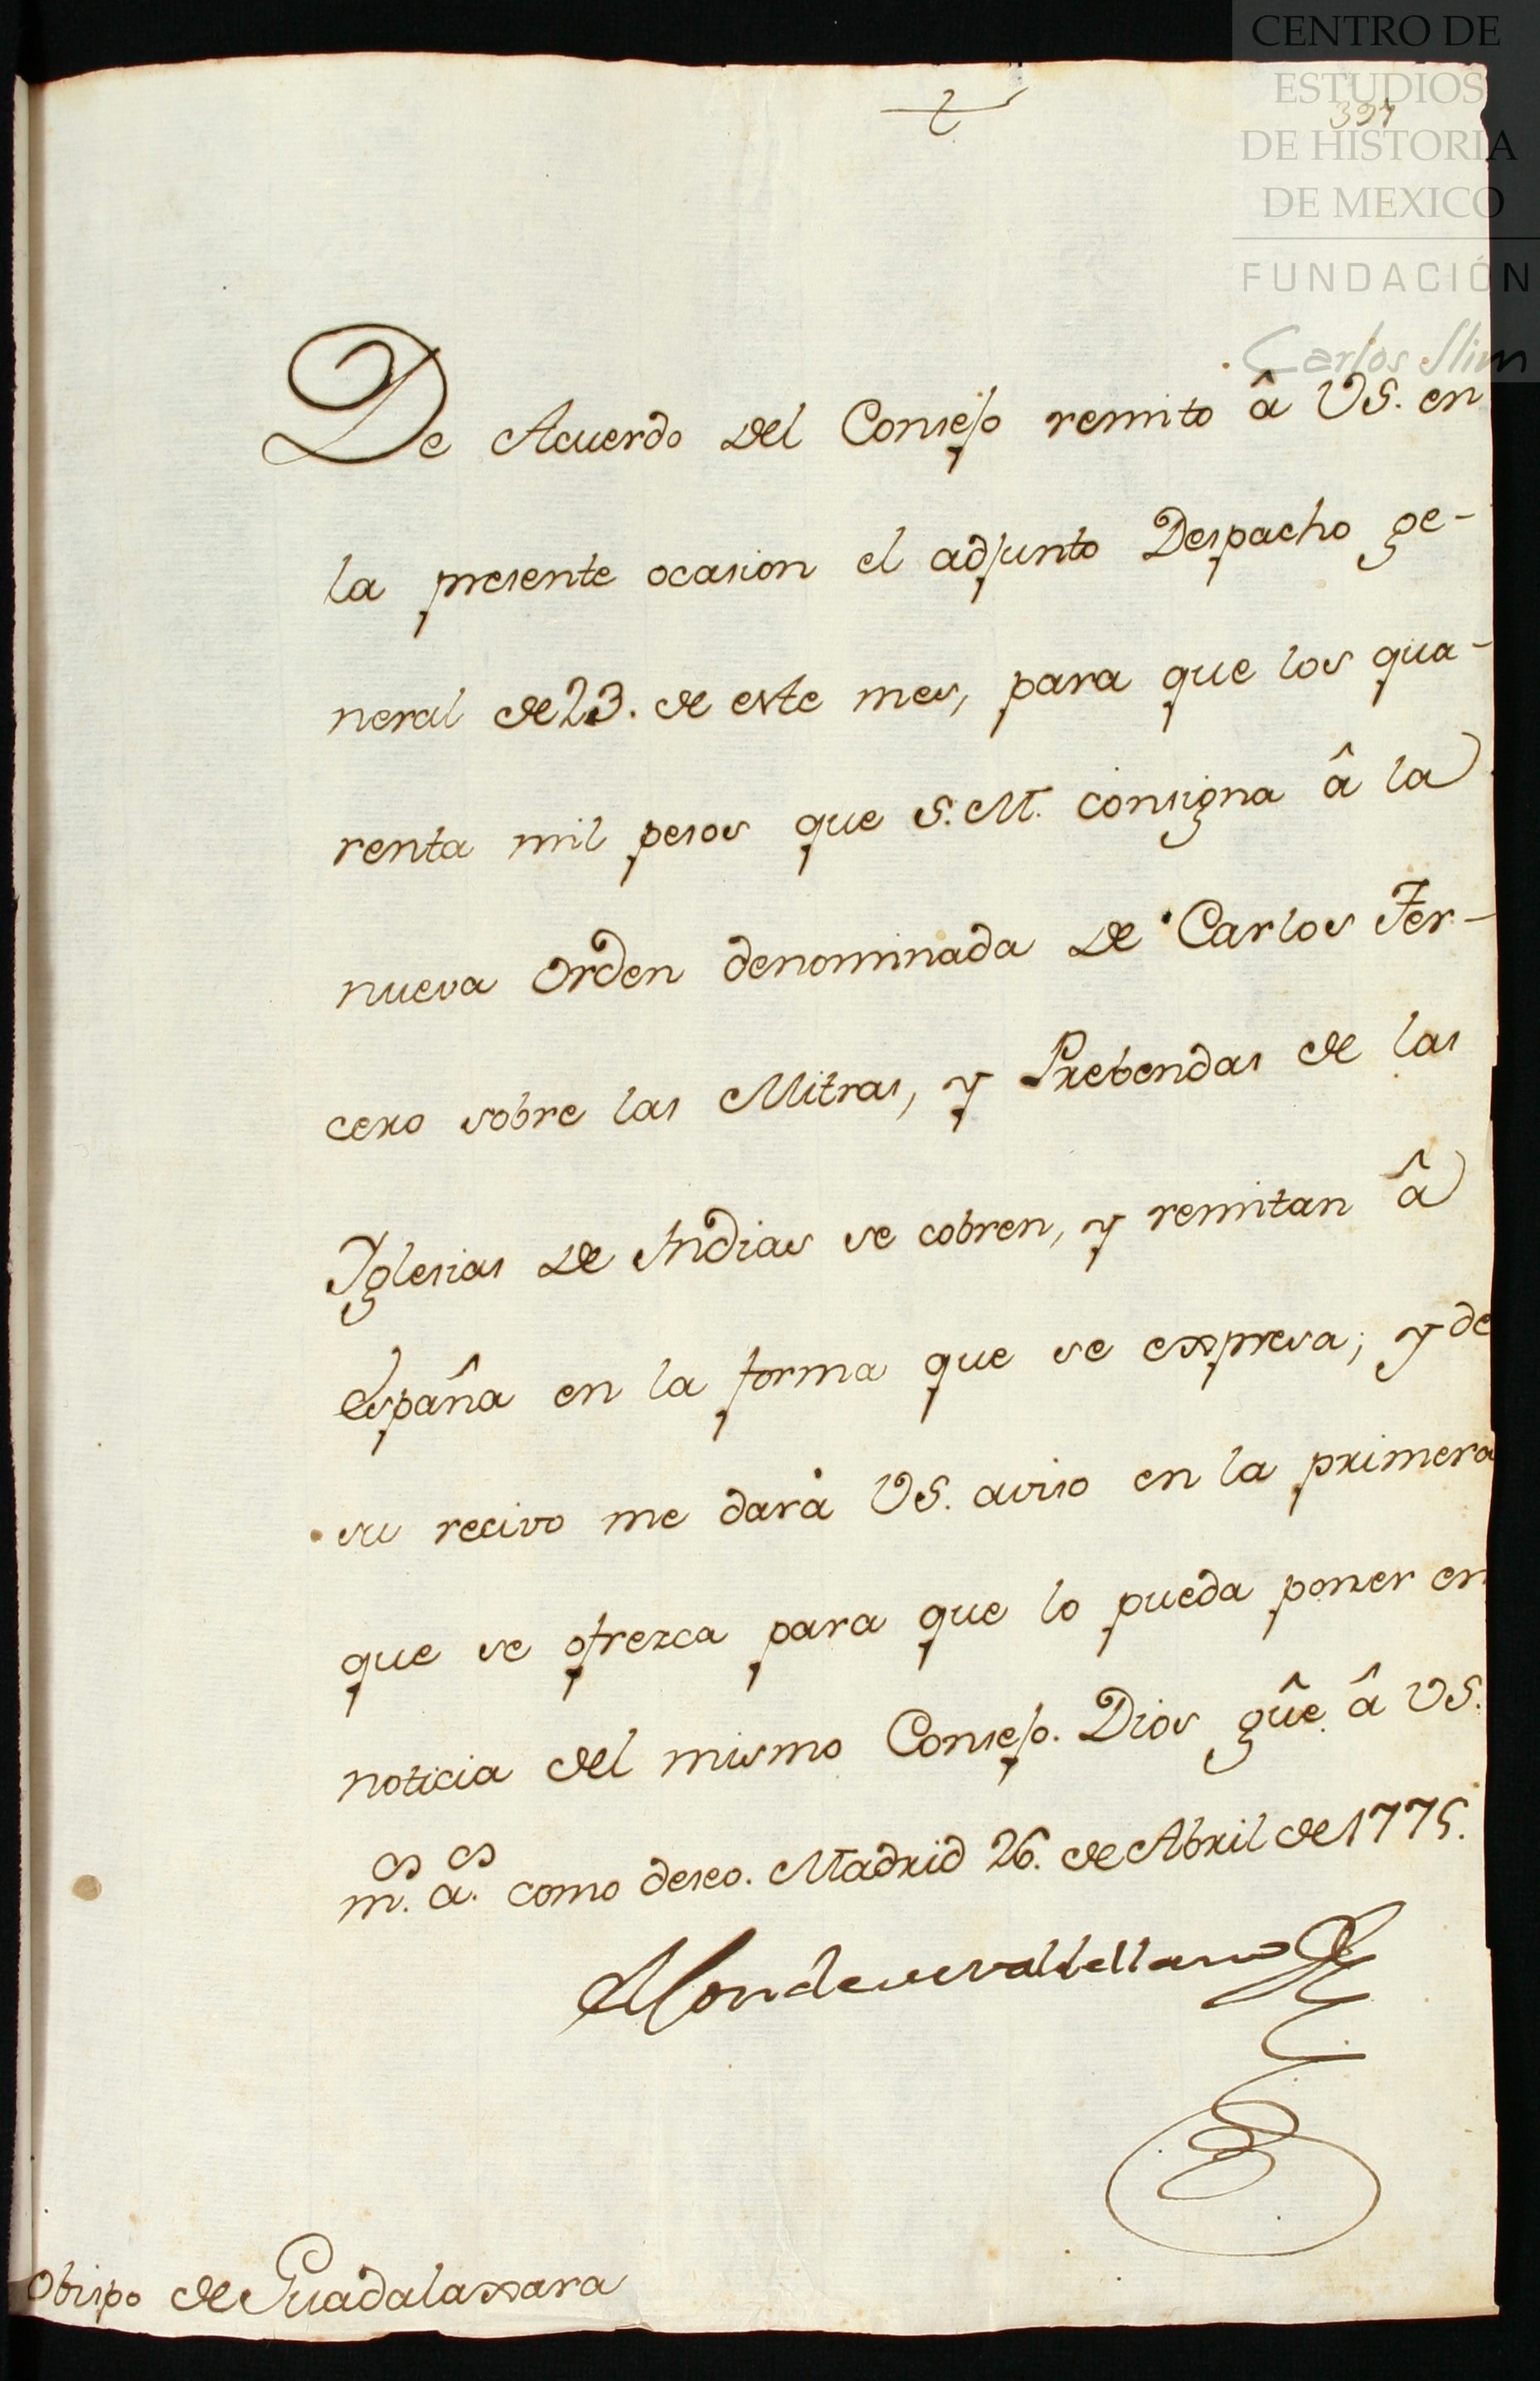 CENTRO DE
ESTUDIOS
DE HISTORIA
DE MEXICO
FUNDACIÓN
Carlos Slim
De Acuerdo del Consejo remito â VS. en
la presente ocasion el adjunto Despacho ge-
neral de 23. de este mes, para que los qua-
renta mil pesos que S. M. consigna â la
nueva Orden denominada de Carlos Ter-
cero sobre las Mitras, y Prebendas de las
Iglesias de Indias se cobren, y remitan â
España en la forma que se expresa; y de
su recivo me dará VS. aviso en la primera
que se ofrezca para que lo pueda poner en
noticia del mismo Consejo. Dios gûe. â VS.
m.s a.s como deseo. Madrid 26. de Abril de 1775.
Obispo de Guadalaxara